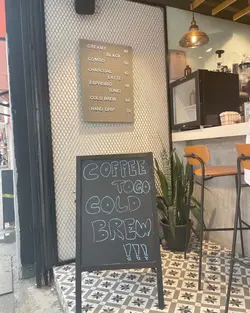 CREAMY
BLACK
COMBO
CHARCOAL
LATTE
ESPRESSO
TONIC
COLD BREW
HAND DRIP
COFFEE
TOGO
COLD
BREW
!!!